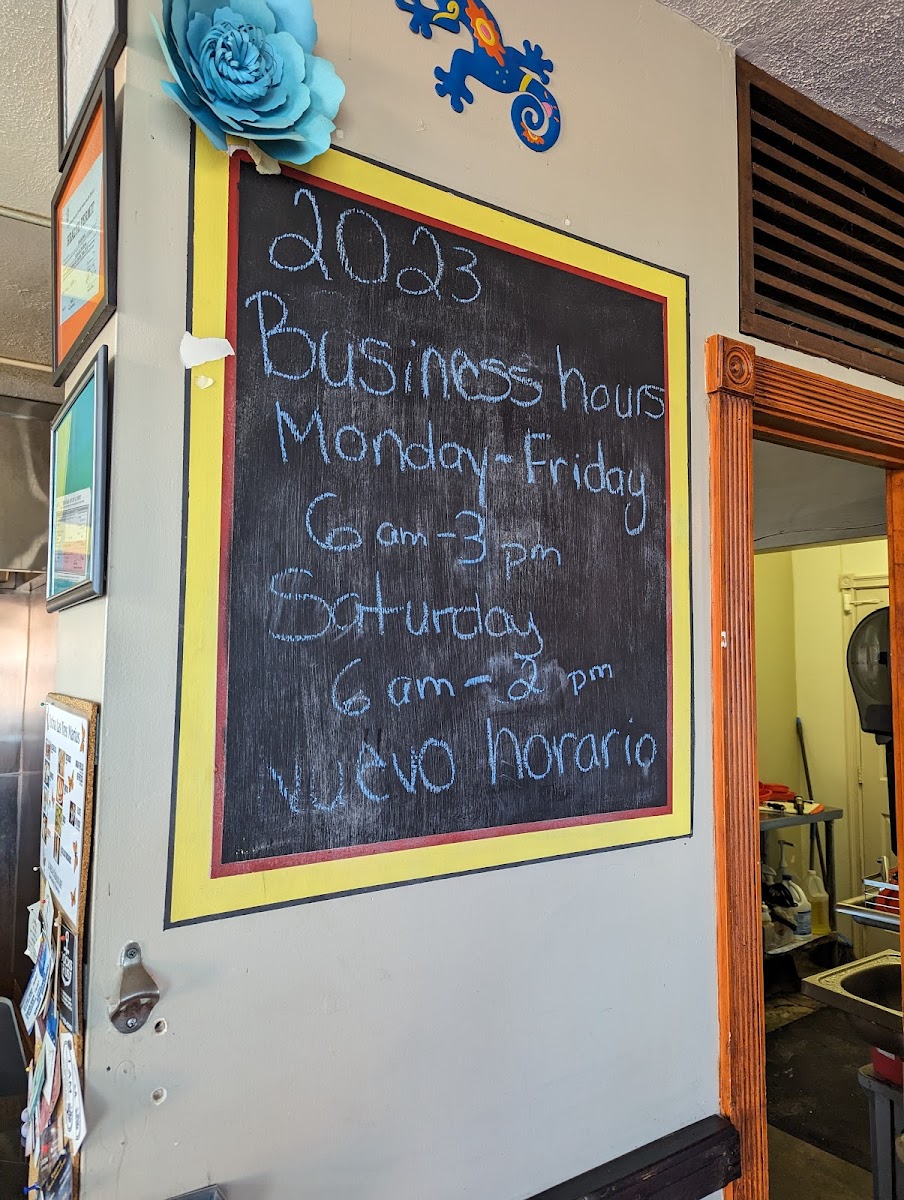 2023
Business hours
Monday-Friday
6 am-3 pm
Saturday
6 am-2 pm
Nuevo horario
HEALTH PERMIT